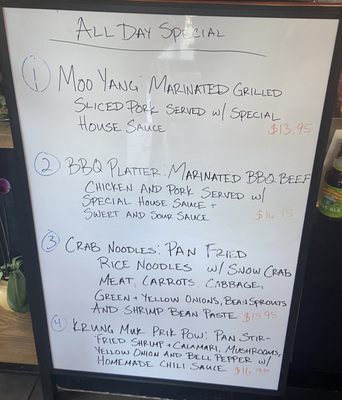 ALL DAY SPECIAL
1 MOO YANG: MARINATED GRILLED
SLICED PORK SERVED W/ SPECIAL
HOUSE SAUCE $13.95
2 BBQ PLATTER: MARINATED BBQ BEEF
CHICKEN AND PORK SERVED W/
SPECIAL HOUSE SAUCE +
SWEET AND SOUR SAUCE $16.95
3 CRAB NOODLES: PAN FRIED
RICE NOODLES W/ SNOW CRAB
MEAT, CARROTS, CABBAGE,
GREEN + YELLOW ONIONS, BEAN SPROUTS
AND SHRIMP BEAN PASTE $19.95
4 KRUNG MUK PRIK POW: PAN STIR-
FRIED SHRIMP + CALAMARI, MUSHROOMS,
YELLOW ONION AND BELL PEPPER W/
HOMEMADE CHILI SAUCE $16.95